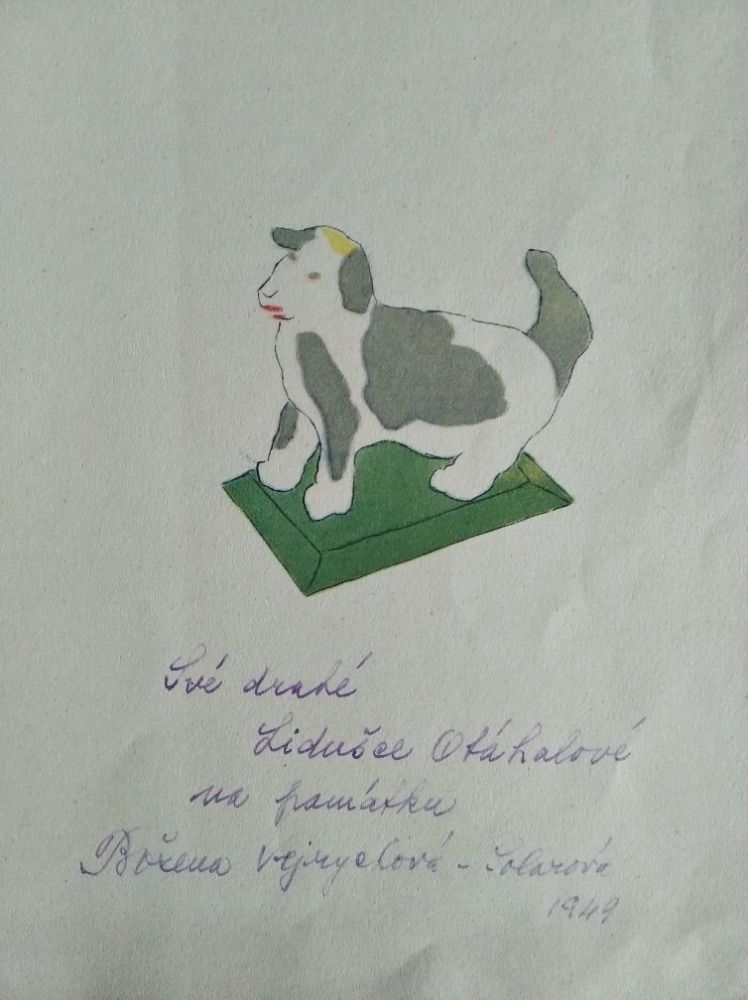 Své drahé
Lidušce Otáhalové
na památku
Božena Vejrychová - Solarová
1949